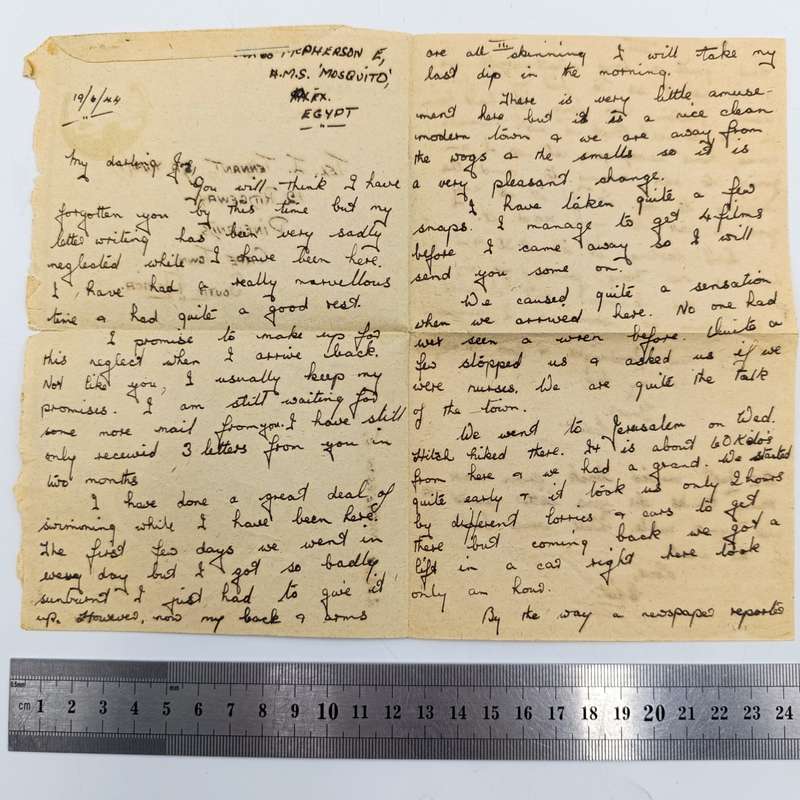 McPHERSON E,
H.M.S. 'MOSQUITO',
ALEX.
EGYPT
19/6/44
My darling Joe,
You will think I have
forgotten you by this time but my
letter writing has been very sadly
neglected while I have been here.
I have had a really marvellous
time & had quite a good rest.
I promise to make up for
this neglect when I arrive back.
Not like you, I usually keep my
promises. I am still waiting for
some more mail from you. I have still
only received 3 letters from you in
two months
I have done a great deal of
swimming while I have been here.
The first few days we went in
every day but I got so badly
sunburnt I just had to give it
up. However, now my back & arms
are all skinning I will take my
last dip in the morning.
There is very little amuse-
ment here but it is a nice clean
modern town & we are away from
the wogs & the smells so it is
a very pleasant change.
I have taken quite a few
snaps. I manage to get 4 films
before I came away so I will
send you some on.
We caused quite a sensation
when we arrived here. No one had
ever seen a wren before. Quite a
few stopped us & asked us if we
were nurses. We are quite the talk
of the town.
We went to Jerusalem on Wed.
Hitch hiked there. It is about 60 Kilo's
from here & we had a grand. We started
quite early & it took us only 2 hours
by different lorries & cars to get
there but coming back we got a
lift in a car right here took
only an hour.
By the way a newspaper reporter
cm 1 2 3 4 5 6 7 8 9 10 11 12 13 14 15 16 17 18 19 20 21 22 23 24
0.5mm
mm